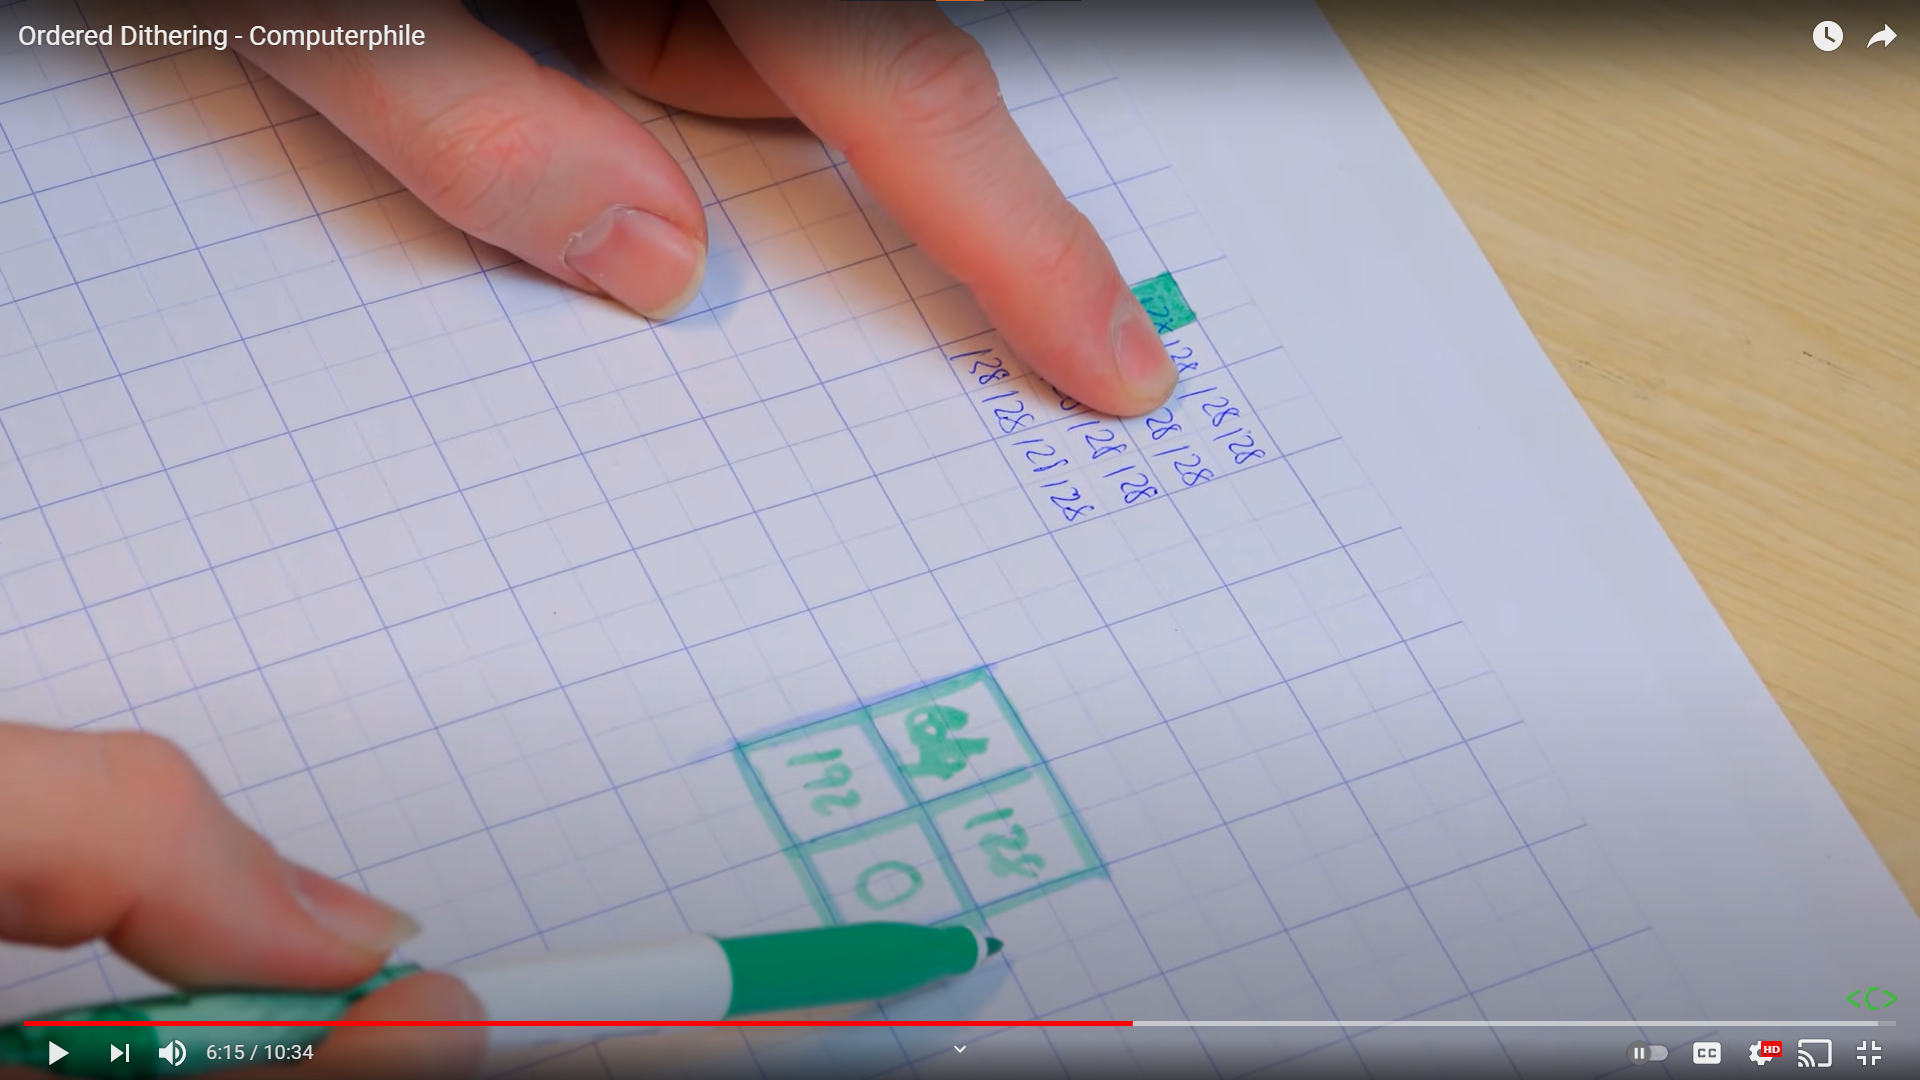 Ordered Dithering - Computerphile
128 128
128 128
128 128
128 128 128 128
192
0 128
<C>
6:15 / 10:34
CC
HD